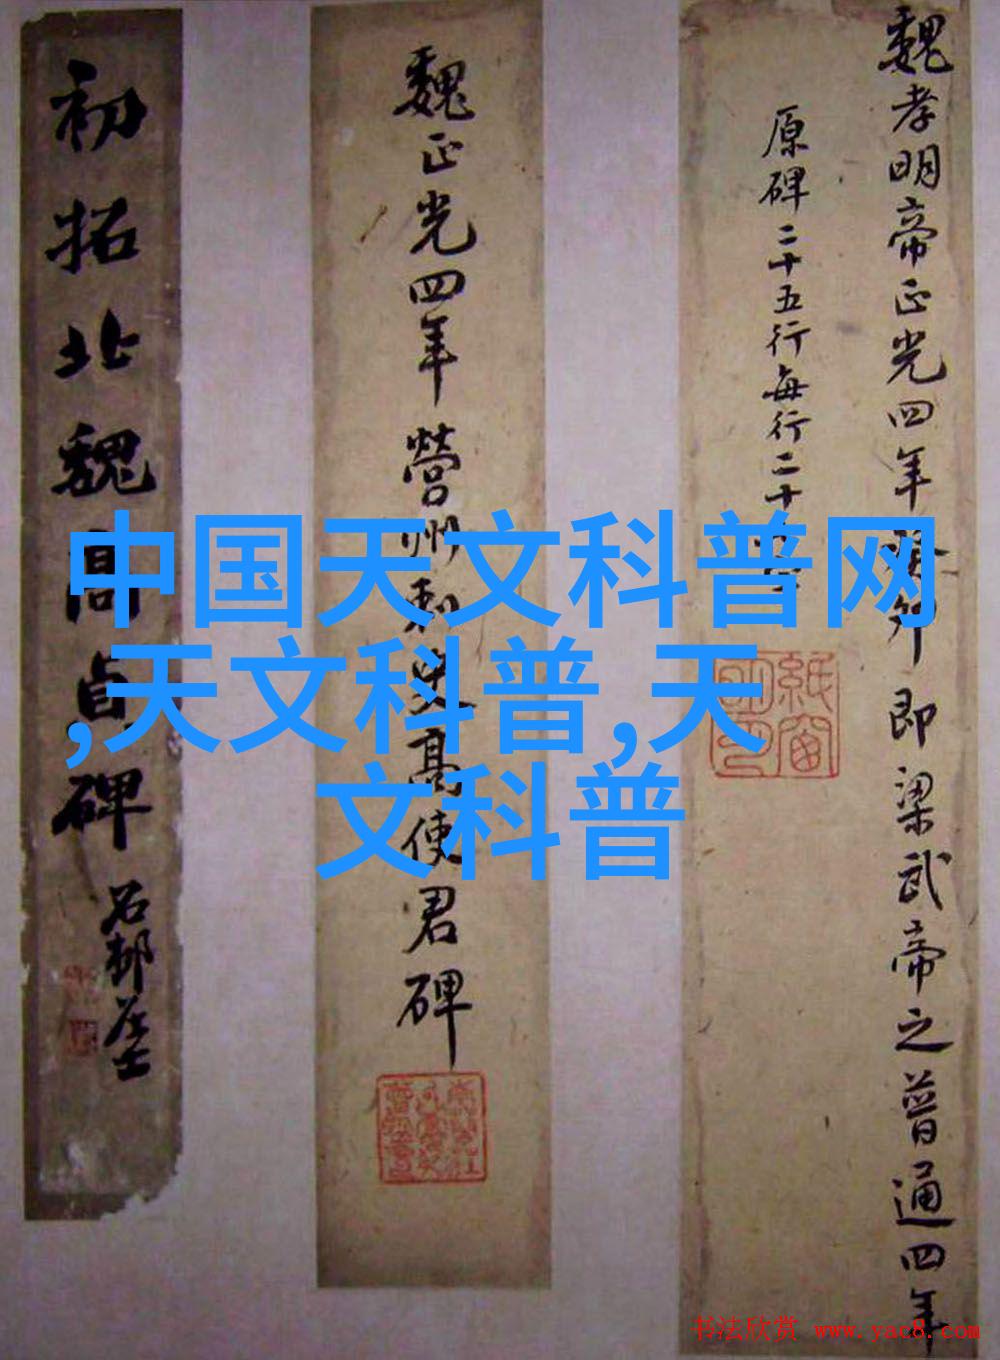 魏孝明帝正光四年癸卯即梁武帝之普通四年
原碑二十五行每行二十
魏正光四年營州刺史高使君碑
初拓北魏高貞碑
石邨居士
中国天文科普网
,天文科普,天
文科普
紙窗
书法欣赏 www.yac8.com